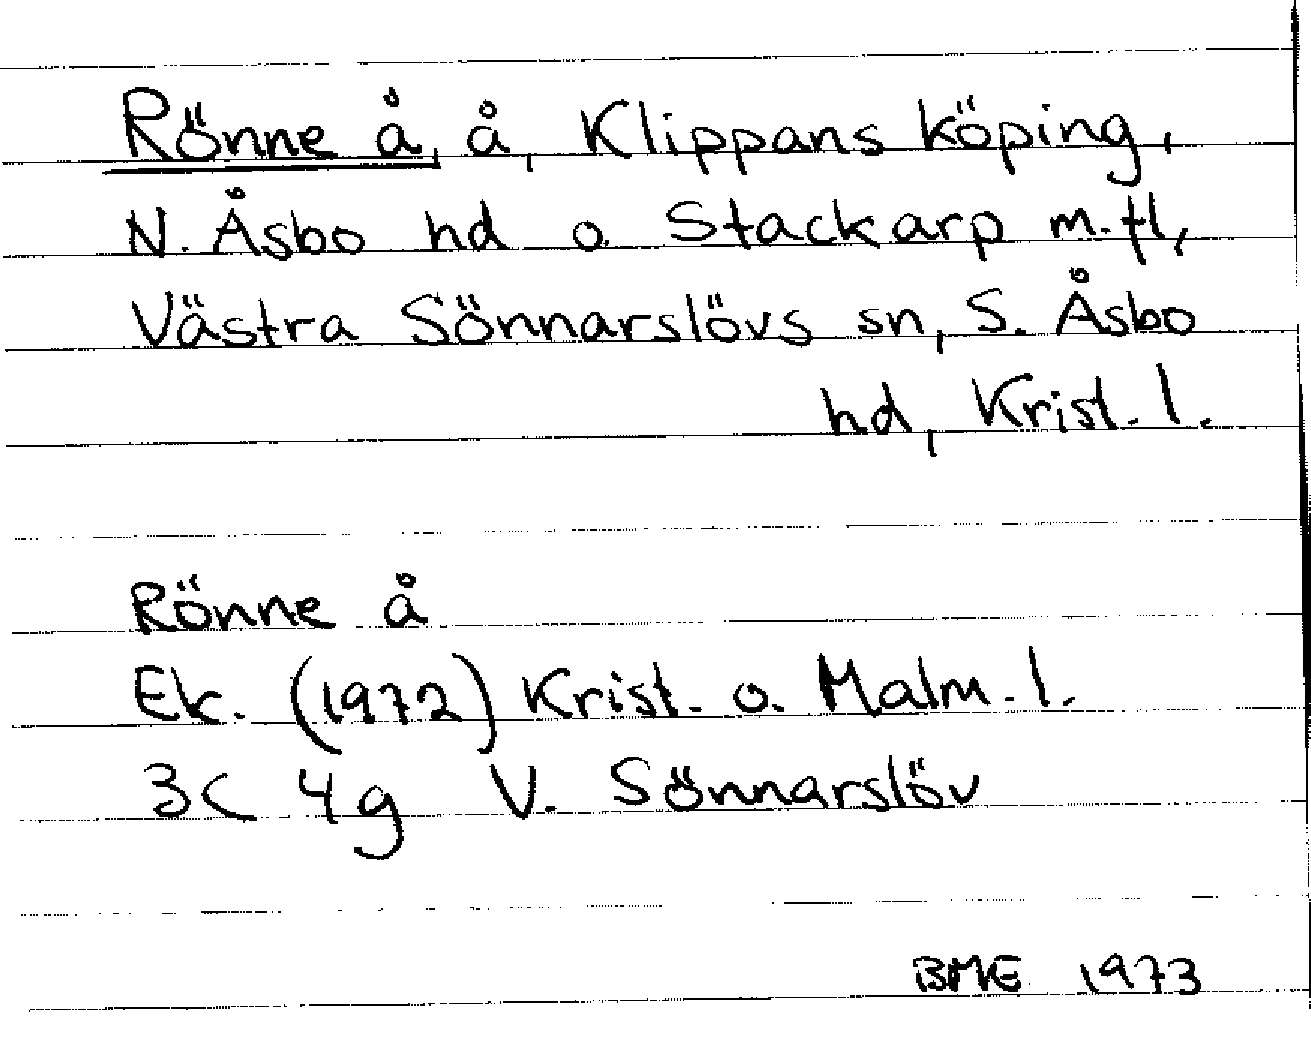 Rönne å, å, Klippans köping,
N. Åsbo hd o. Stackarp m.fl,
Västra Sönnarslövs sn, S. Åsbo
hd, Krist. l.
Rönne å
Ek. (1972) Krist. o. Malm. l.
3C 4g V. Sönnarslöv
BME 1973